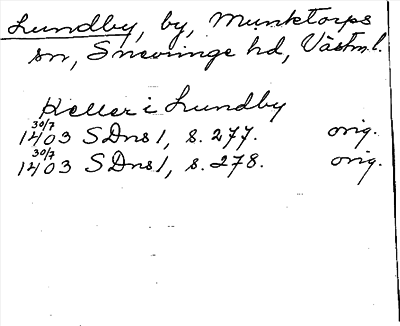 Lundby, by, Munktorps
sn, Snevringe hd, Västm.l.
Keller i Lundby
30/7
1403 SDns1, s. 277. orig.
30/7
1403 SDns1, s. 278. orig.